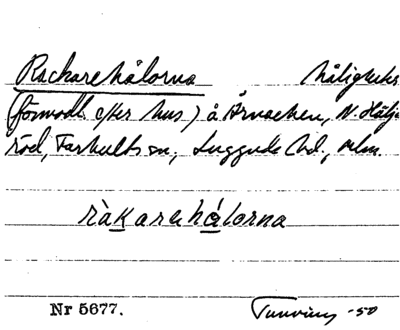 Rackarehålorna håligheter
(förmodl. efter hus) å Årnacken, N. Hälje-
röd, Farhults sn, Luggude hd, Mlm.
ràkarehålorna
Nr 5677. Tunving -50